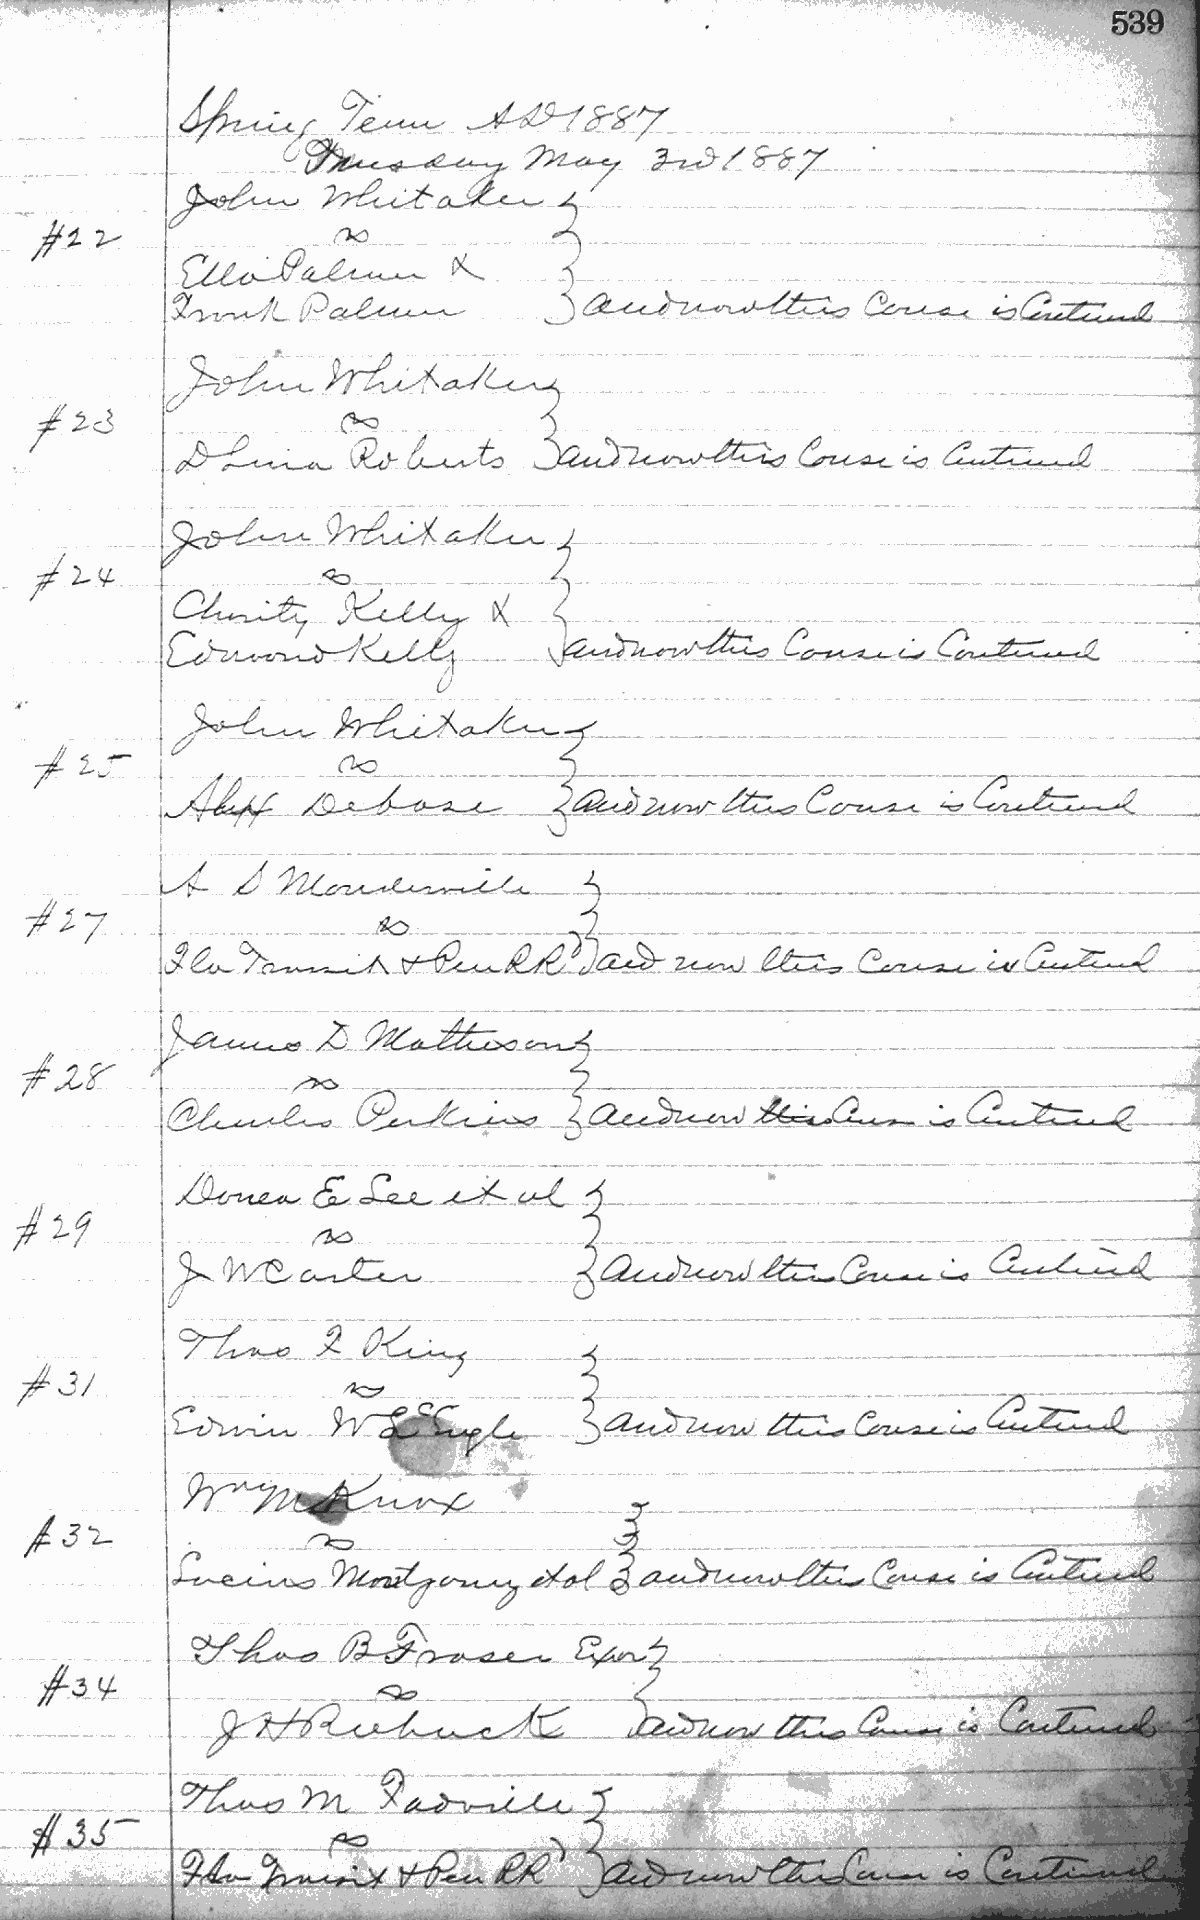 539
Spring Term AD 1887
Tuesday May 3rd 1887
John Whitaker
#22
vs
Ella Palmer &
Frank Palmer } and now this Cause is Continued
John Whitaker
#23
vs
Roberts } and now this Cause is Continued
John Whitaker
#24
vs
Charity Kelly &
Edmond Kelly } and now this Cause is Continued
John Whitaker
#25
vs
Alex Debose } and now this Cause is Continued
A S Manderville
#27
vs
Fla Transit & Pen RR } and now this Cause is Continued
James D Matheson
#28
vs
Charles Perkins } and now this Cause is Continued
E Lee et al
#29
vs
J W Carter } and now this Cause is Continued
Thos F King
#31
vs
Edwin W L'Engle } and now this Cause is Continued
Wm M Knox
#32
vs
Lucius Montgomery et al } and now this Cause is Continued
Thos B Fraser Exor
#34
vs
J H Roebuck } and now this Cause is Continued
Thos M
#35
vs
Fla Transit & Pen RR } and now this Cause is Continued